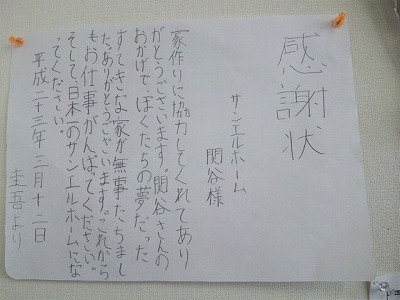 感謝状
サンエルホーム
関谷様
家作りに協力してくれてあり
がとうございます。関谷さんの
おかげで、ぼくたちの夢だった
すてきな家が無事たちまし
た。ありがとうございます。これから
もお仕事がんばってください。
そして、日本一のサンエルホームにな
ってください。
平成二十三年三月十二日
圭吾より